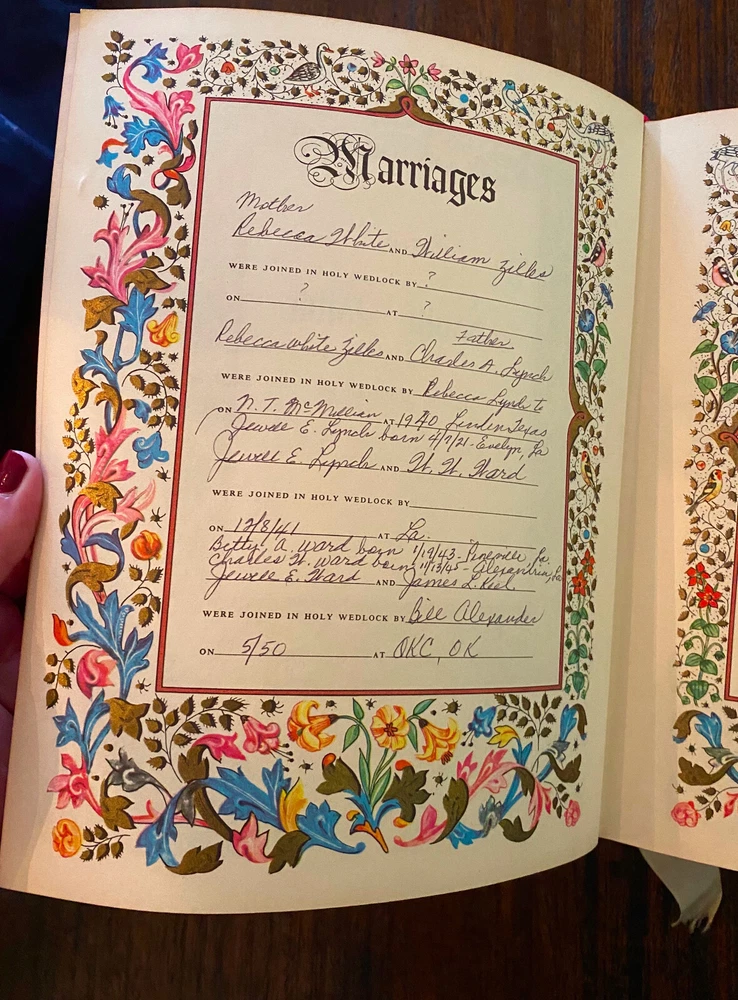 Marriages
Mother
Rebecca White AND William Zilles
WERE JOINED IN HOLY WEDLOCK BY ?
ON ? AT ?
Father
Rebecca White Zilles AND Charles A. Lynch
WERE JOINED IN HOLY WEDLOCK BY Rebecca Lynch to
ON N. T. McMillian AT 1940 Linden Texas
Jewell E. Lynch born 4/7/21 - Evelyn, La
Jewell E. Lynch AND W. W. Ward
WERE JOINED IN HOLY WEDLOCK BY
ON 12/8/41 AT La.
Betty A. Ward born 1/19/43 - La.
Charles W. Ward born 11/13/45 - Alexandria, La
Jewell E. Ward AND James L. Keel
WERE JOINED IN HOLY WEDLOCK BY Bill Alexander
ON 5/50 AT OKC, OK